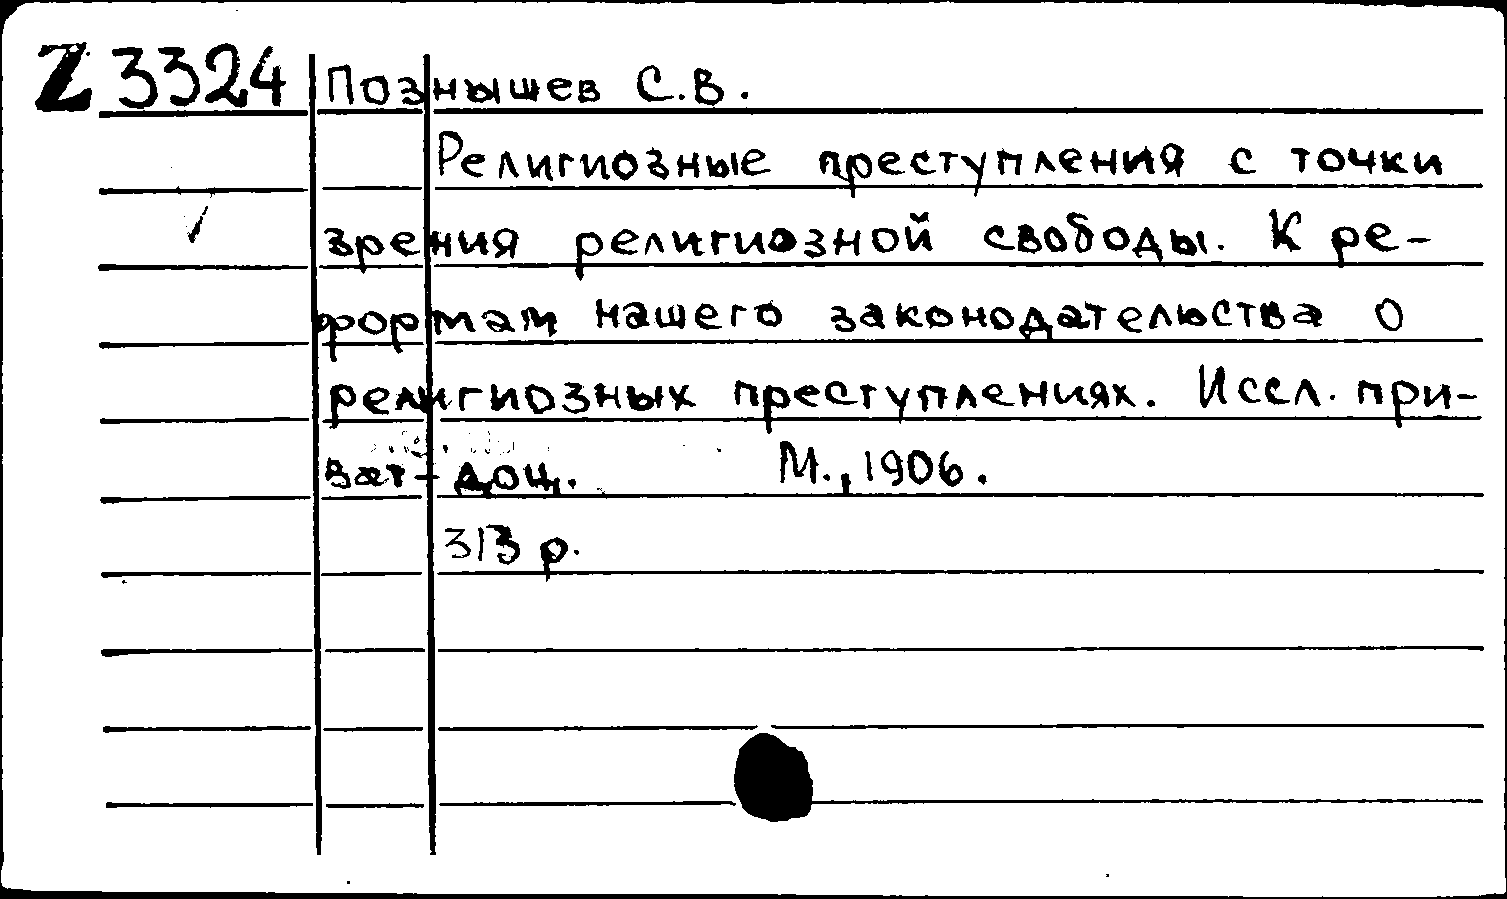 Z 3324 Познышев С.В.
Религиозные преступления с точки
зрения религиозной свободы. К ре-
формам нашего законодательства о
религиозных преступлениях. Иссл. при-
ват-доц. М., 1906.
313 р.